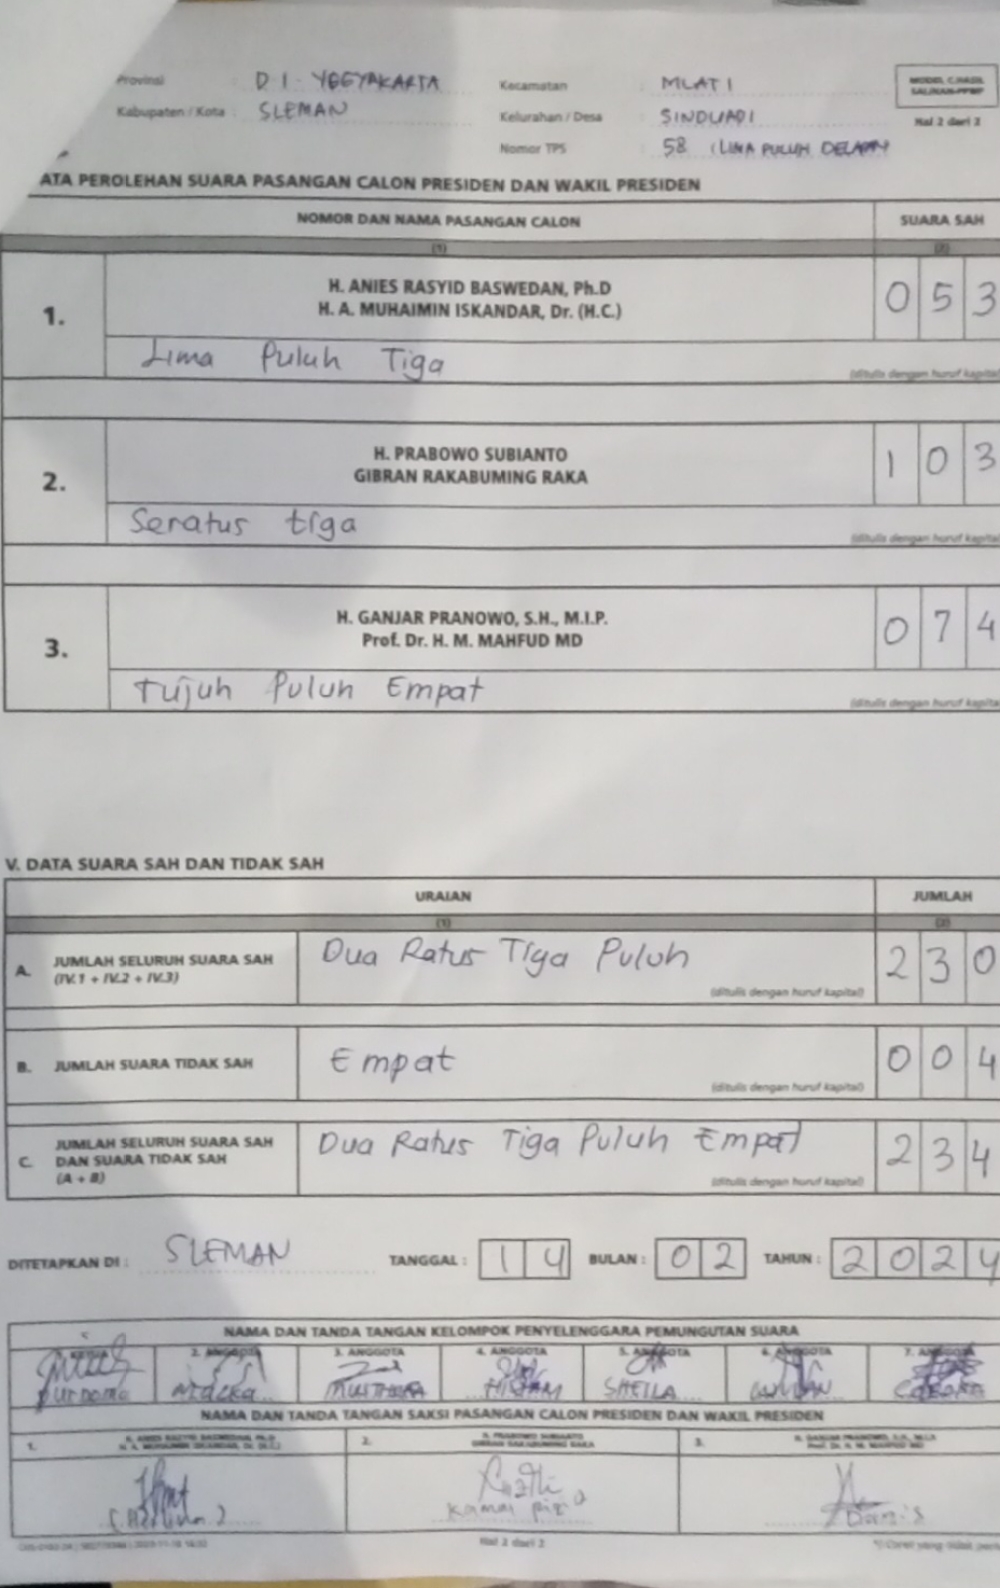 Provinsi : D I - YOGYAKARTA
Kabupaten / Kota : SLEMAN
Kecamatan : MLATI
Kelurahan / Desa : SINDUADI
Nomor TPS : 58 (LIMA PULUH DELAPAN
MODEL C.HASIL
SALINAN-PPWP
Hal 2 dari 2
ATA PEROLEHAN SUARA PASANGAN CALON PRESIDEN DAN WAKIL PRESIDEN
NOMOR DAN NAMA PASANGAN CALON SUARA SAH
(1) (2)
1. H. ANIES RASYID BASWEDAN, Ph.D
H. A. MUHAIMIN ISKANDAR, Dr. (H.C.) 0 5 3
Lima Puluh Tiga
(ditulis dengan huruf kapital
2. H. PRABOWO SUBIANTO
GIBRAN RAKABUMING RAKA 1 0 3
Seratus tiga
(ditulis dengan huruf kapital
3. H. GANJAR PRANOWO, S.H., M.I.P.
Prof. Dr. H. M. MAHFUD MD 0 7 4
Tujuh Puluh Empat
(ditulis dengan huruf kapita
V. DATA SUARA SAH DAN TIDAK SAH
URAIAN JUMLAH
(1) (2)
A. JUMLAH SELURUH SUARA SAH
(IV.1 + IV.2 + IV.3) Dua Ratus Tiga Puluh 2 3 0
(ditulis dengan huruf kapital)
B. JUMLAH SUARA TIDAK SAH Empat 0 0 4
(ditulis dengan huruf kapital)
C. JUMLAH SELURUH SUARA SAH
DAN SUARA TIDAK SAH
(A + B) Dua Ratus Tiga Puluh Empat 2 3 4
(ditulis dengan huruf kapital)
DITETAPKAN DI : SLEMAN TANGGAL : 1 4 BULAN : 0 2 TAHUN : 2 0 2 4
NAMA DAN TANDA TANGAN KELOMPOK PENYELENGGARA PEMUNGUTAN SUARA
2. ANGGOTA 3. ANGGOTA 4. ANGGOTA 5. ANGGOTA 6. ANGGOTA 7. ANGGOTA
Purnomo HISYAM SHEILA
NAMA DAN TANDA TANGAN SAKSI PASANGAN CALON PRESIDEN DAN WAKIL PRESIDEN
1. 2. H. PRABOWO SUBIANTO
GIBRAN RAKABUMING RAKA 3.
Danis
Hal 2 dari 2